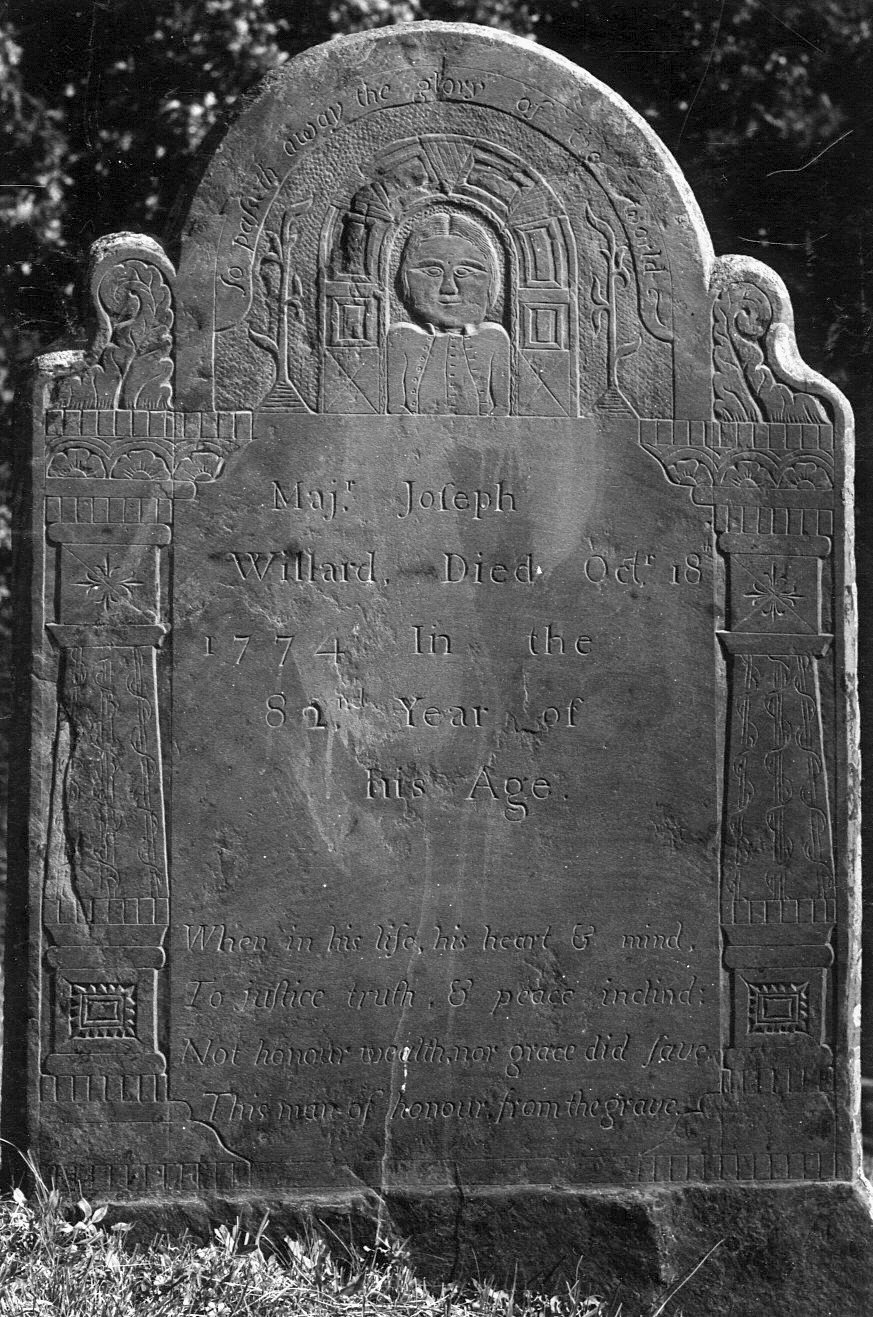 so paſseth away the glory of the world
Majr. Joſeph
Willard, Died Octr 18th
1774 In the
82nd Year of
his Age.
When in his life, his heart & mind,
To juſtice truth, & peace inclind:
Not honour wealth, nor grace did ſave,
This man of honour, from the grave.